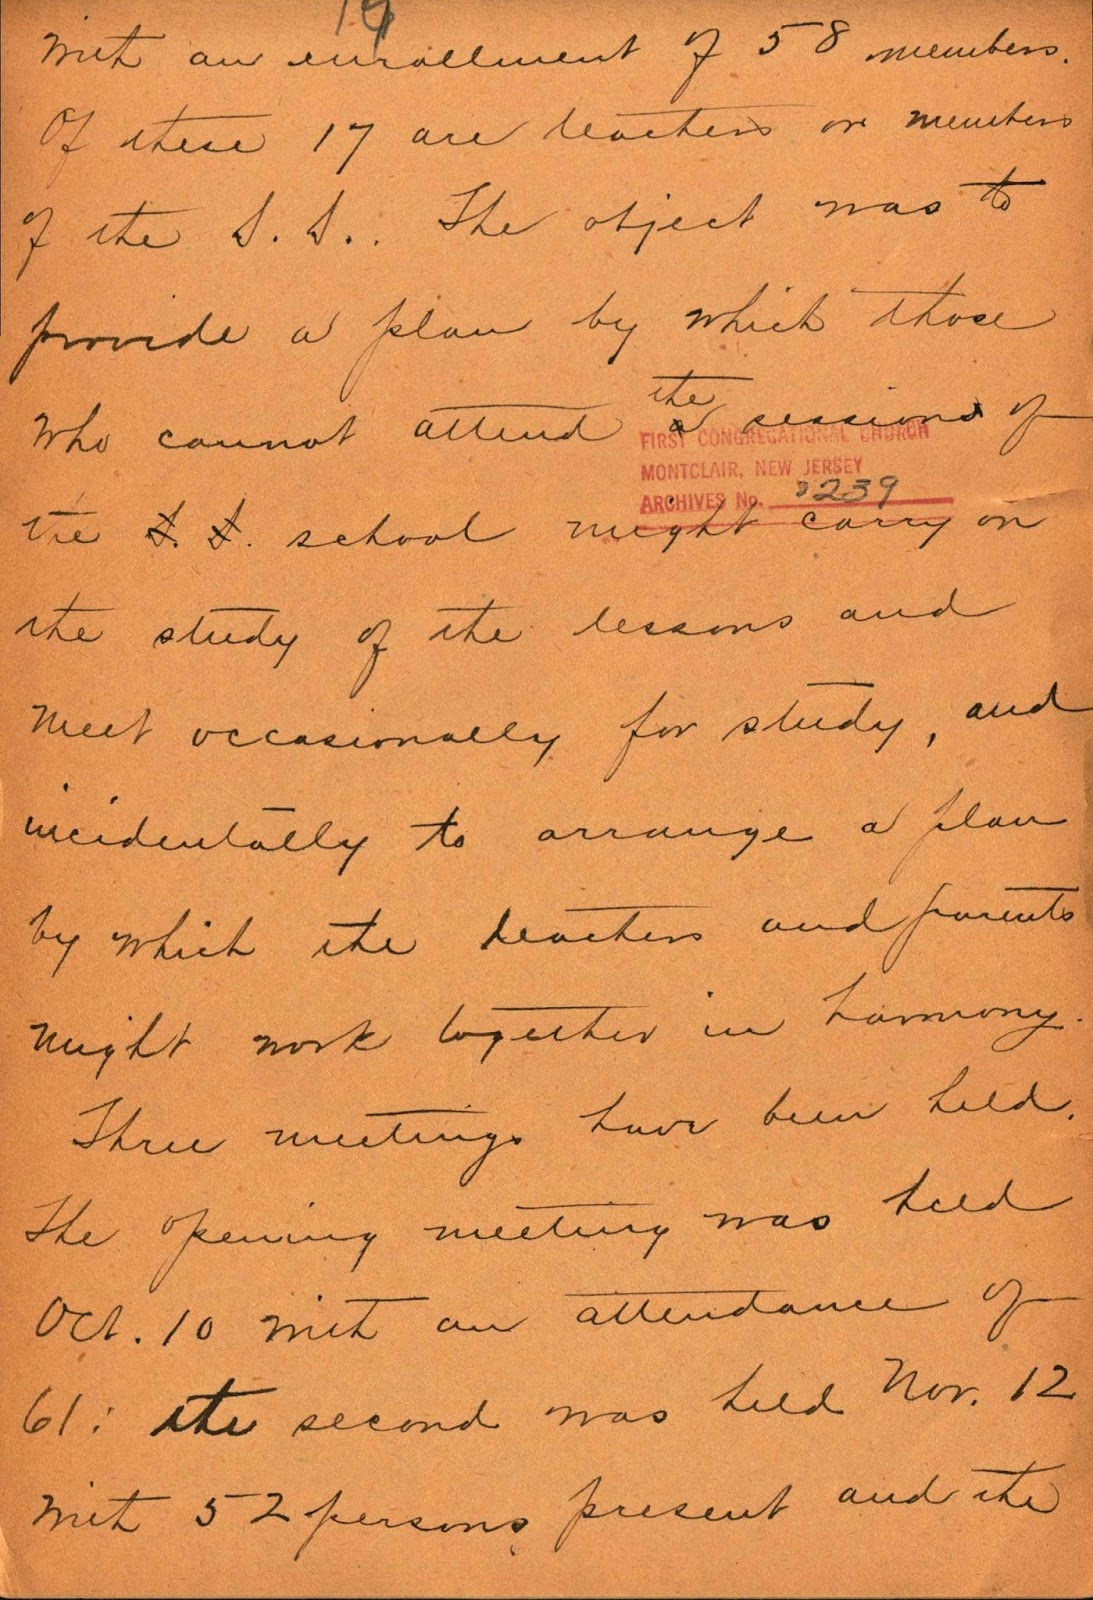 19
with an enrollment of 58 members.
Of these 17 are teachers or members
of the S. S.. The object was to
provide a plan by which those
who cannot attend the a sessions of
FIRST CONGREGATIONAL CHURCH
MONTCLAIR, NEW JERSEY
ARCHIVES No. 3239
the S. S. school might carry on
the study of the lessons and
meet occasionally for study, and
incidentally to arrange a plan
by which the teachers and parents
might work together in harmony.
Three meetings have been held.
The opening meeting was held
Oct. 10 with an attendance of
61: the second was held Nov. 12
with 52 persons present and the